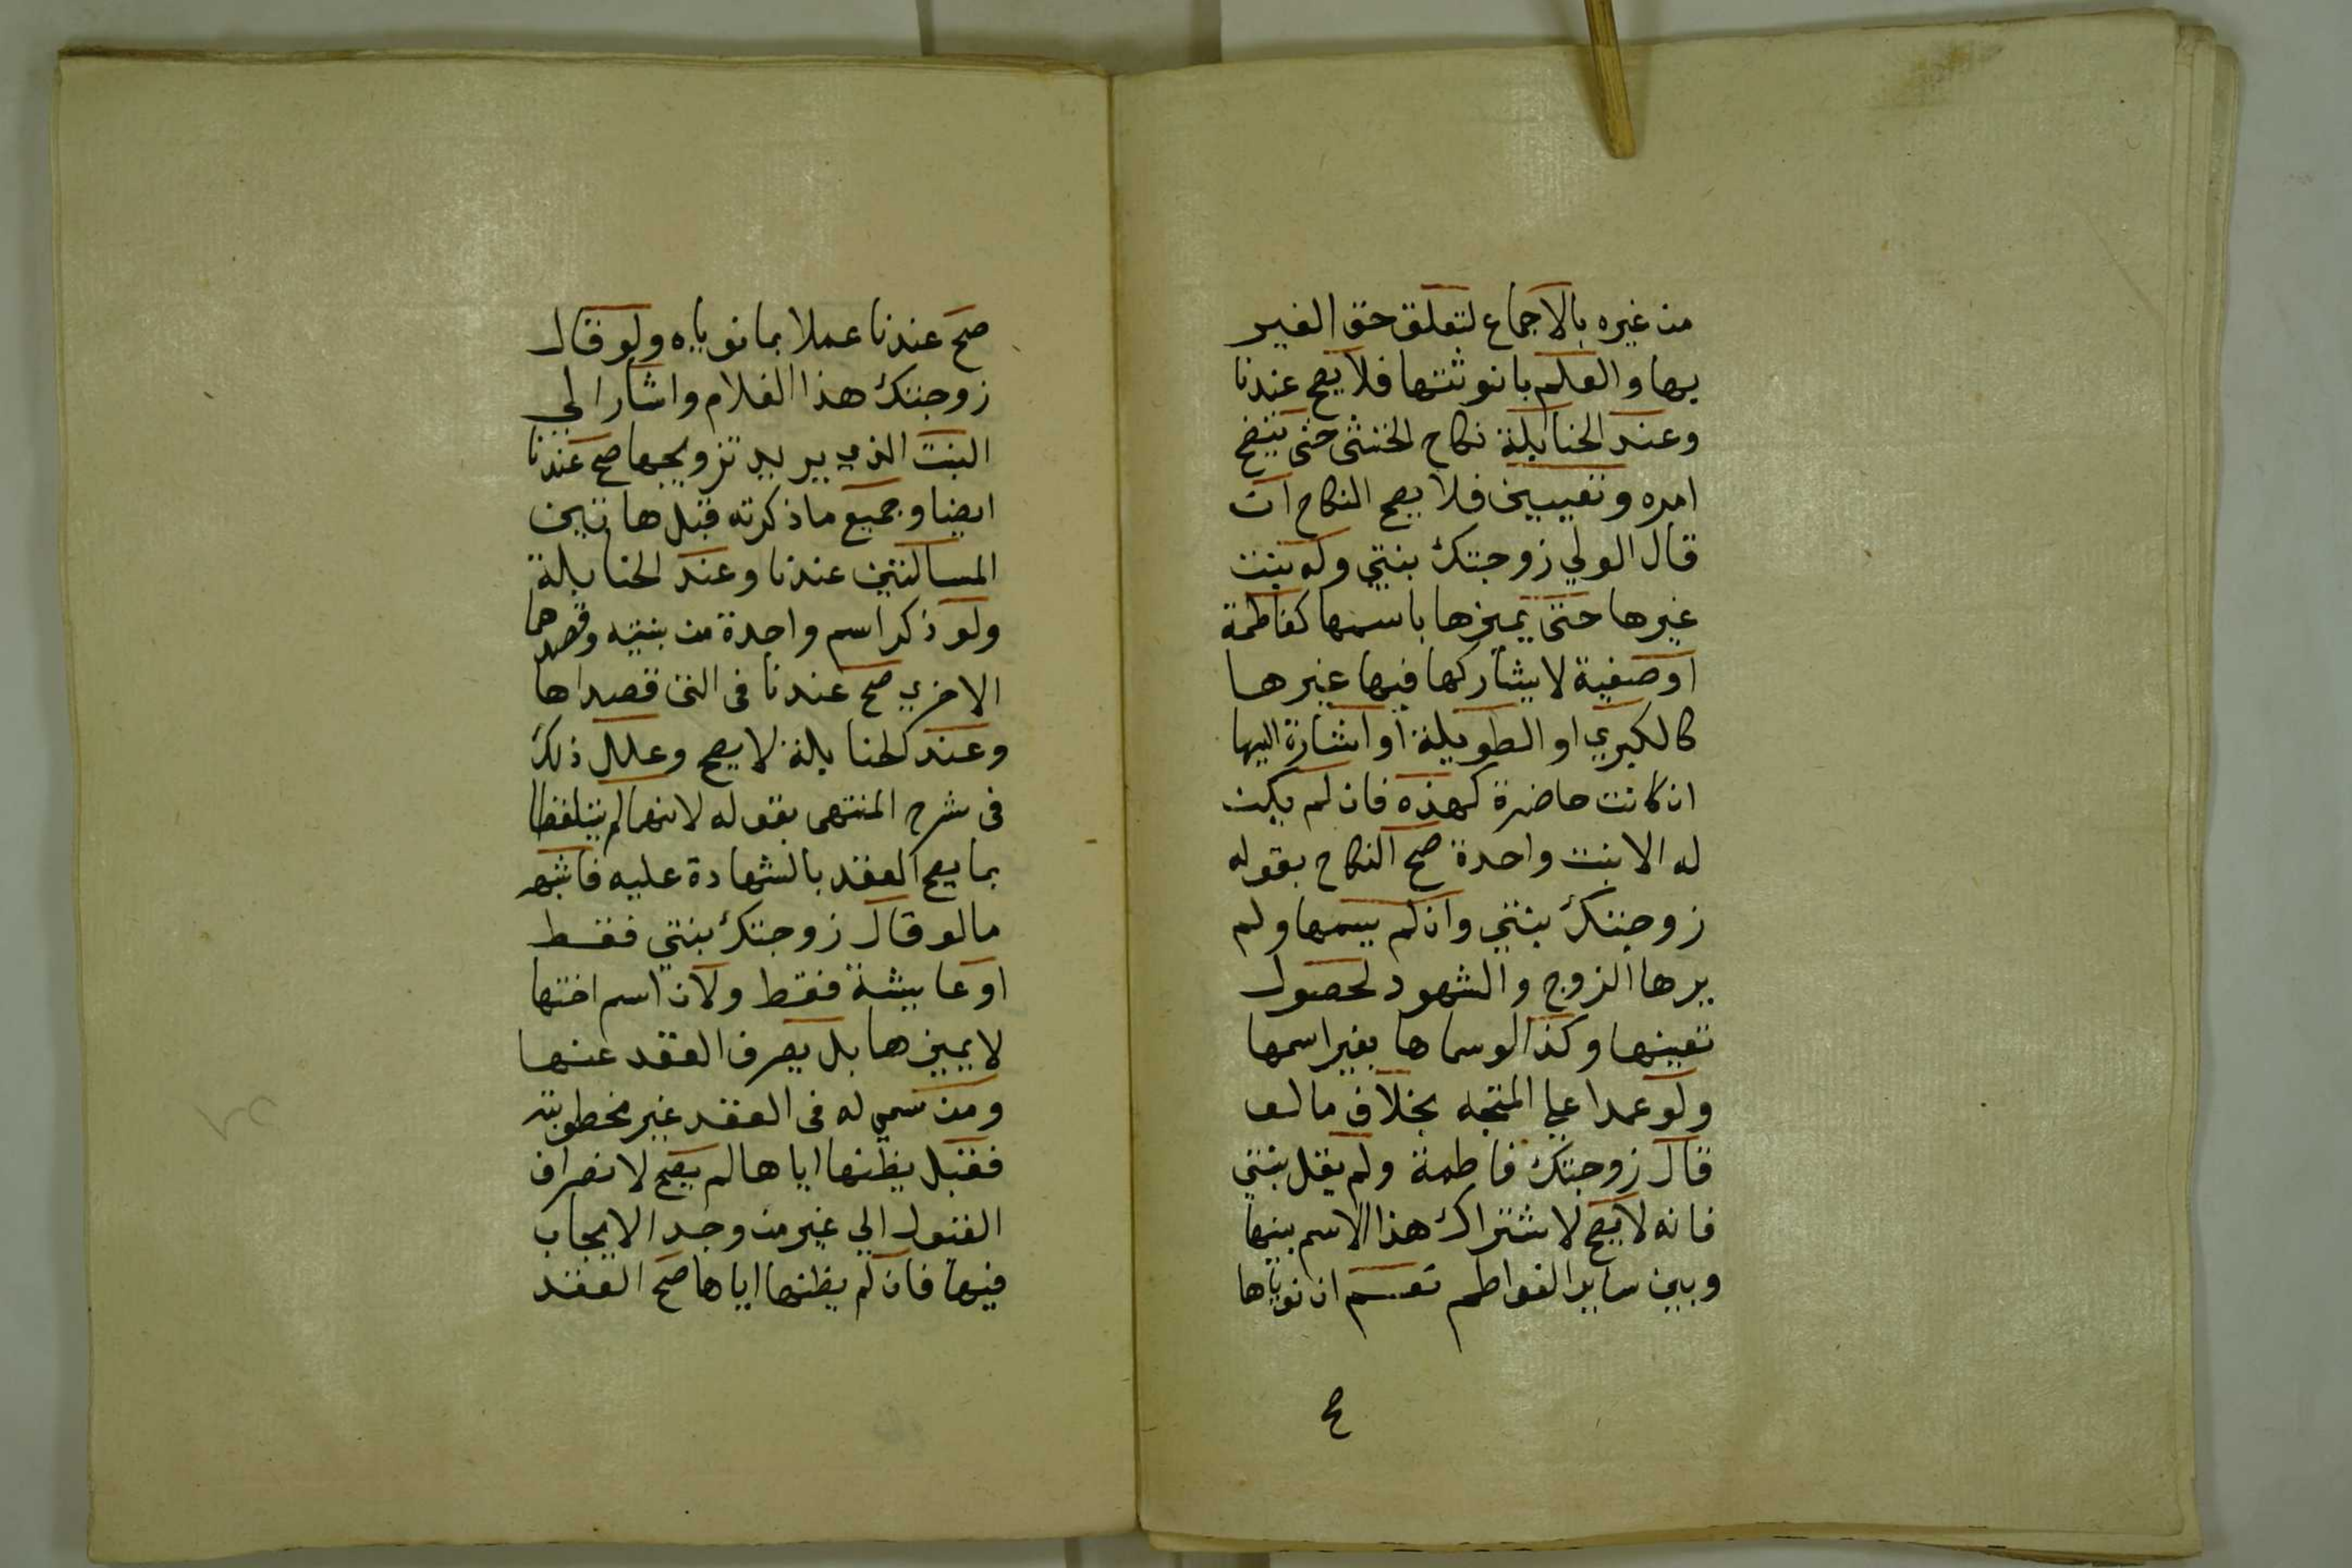 من غيره بالاجماع لتعلق حق الغير
بها والعلم بانوثتها فلا يصح عندنا
وعند الحنابلة نكاح الخنثى حتى يتضح
امره وتعيين فلا يصح النكاح ان
قال الولي زوجتك بنتي وله بنت
غيرها حتى يميزها باسمها كفاطمة
او صفية لا يشاركها فيها غيرها
كالكبري او الطويلة او اشارة اليها
ان كانت حاضرة كهذه فان لم يكن
له الا بنت واحدة صح النكاح بقوله
زوجتك بنتي وان لم يسمها ولم
يرها الزوج والشهود لحصول
تعينها وكذا لو سماها بغير اسمها
ولو عمدا علي المتجه بخلاف ما لو
قال زوجتك فاطمة ولم يقل بنتي
فانه لا يصح لاشتراك هذا الاسم بينها
وبين ساير الفواطم نعم ان نوياها
صح
صح عندنا عملا بما نوياه ولو قال
زوجتك هذا الغلام واشار الي
البنت الذي يريد تزويجها صح عندنا
ايضا وجميع ما ذكرته قبل هاتين
المسالتين عندنا وعند الحنابلة
ولو ذكر اسم واحدة من بنتيه وقصدهما
الاخري صح عندنا في التي قصداها
وعند الحنابلة لا يصح وعلل ذلك
في شرح المنتهى بقوله لانهما لم يتلفظا
بما يصح العقد بالشهادة عليه فاشبه
ما لو قال زوجتك بنتي فقط
او عايشة فقط ولان اسم اختها
لا يميزها بل يصرف العقد عنها
ومن سمي له في العقد غير مخطوبته
فقبل يظنها اياها لم يصح لانصراف
القبول الي غير من وجد الايجاب
فيها فان لم يظنها اياها صح العقد